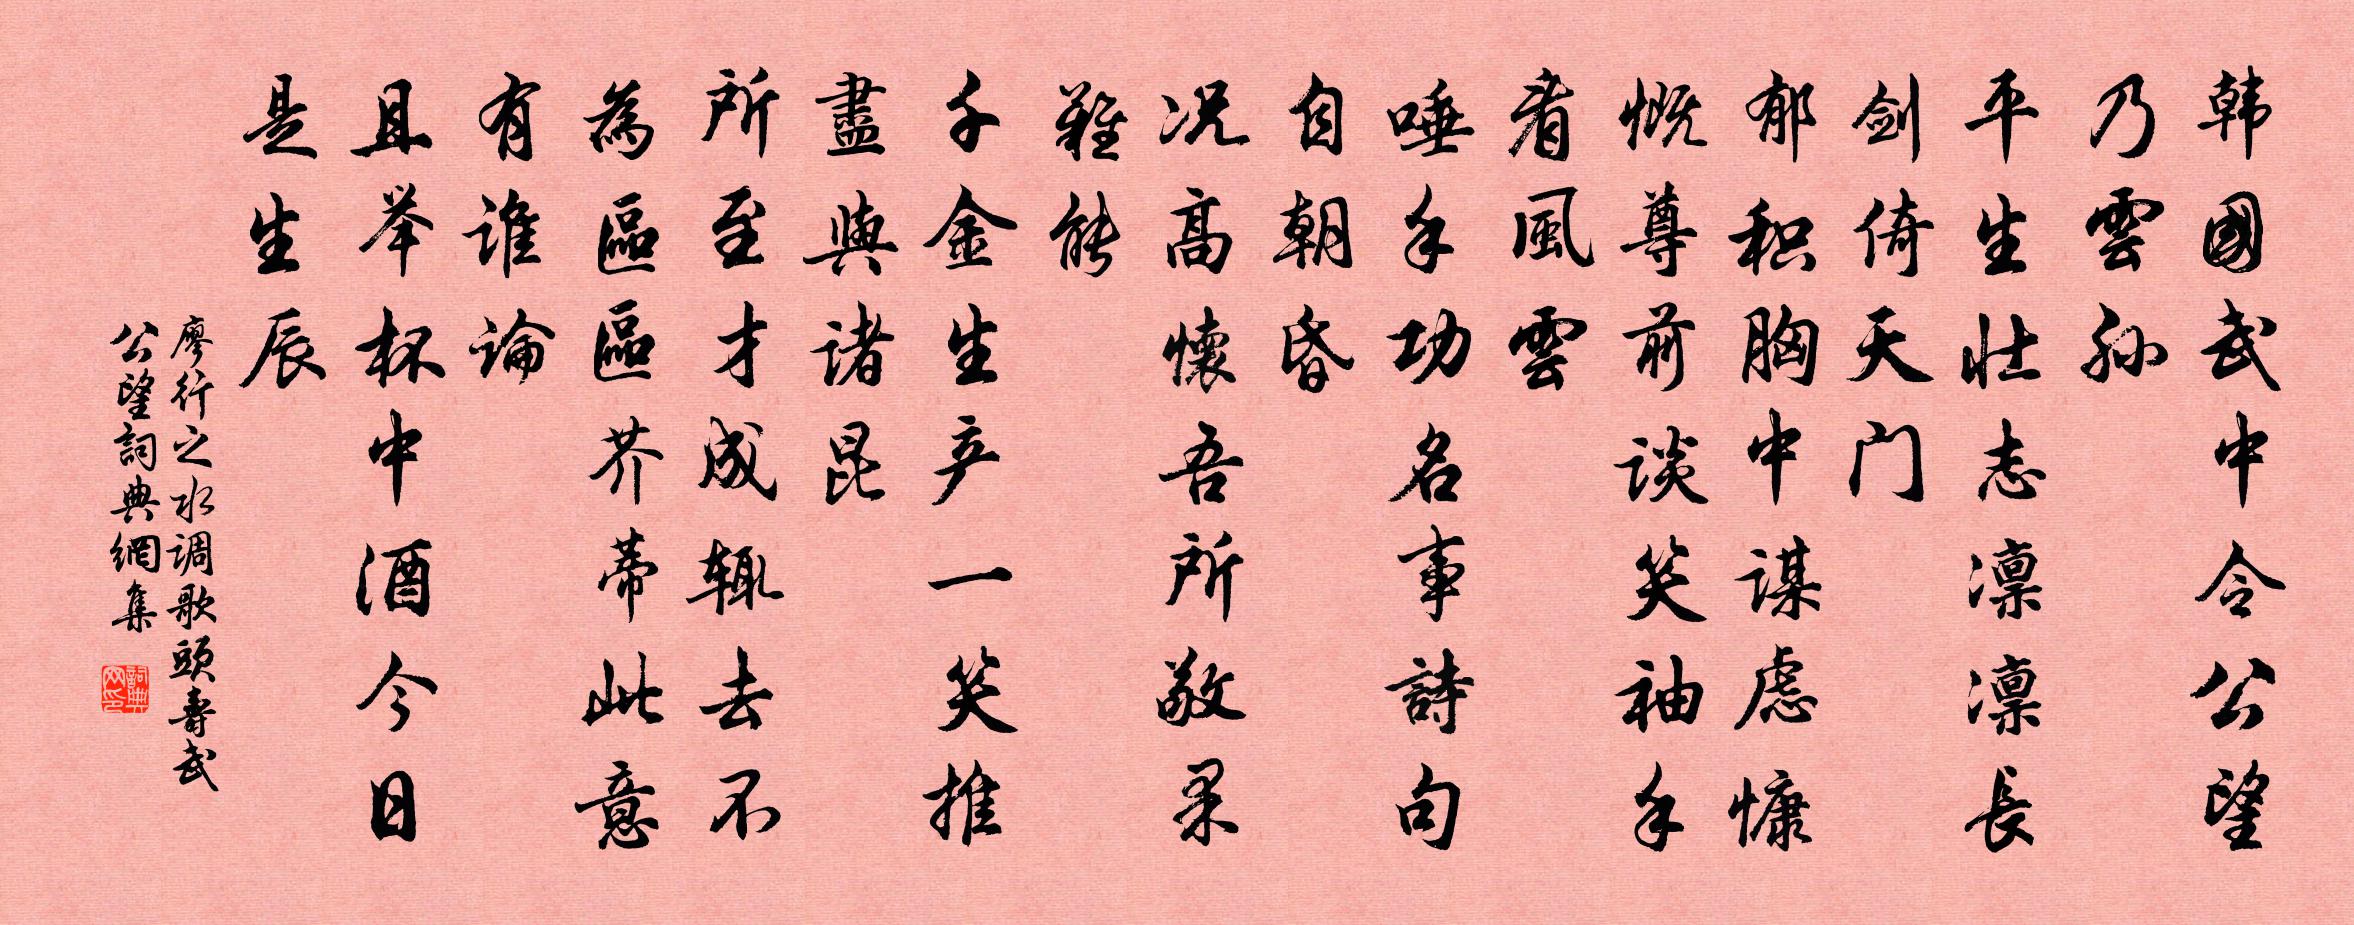 韩國武中令公望
乃雲孙
平生壮志凛凛長
剑倚天门
郁积胸中谋虑慷
慨尊前谈笑袖手
看風雲
唾手功名事詩句
自朝昏
况高懷吾所敬果
難能
千金生产一笑推
盡與诸昆
所至才成辄去不
為區區芥蒂此意
有谁論
且举杯中酒今日
是生辰
廖行之水调歌頭寿武
公望詞典網集
詞典網印